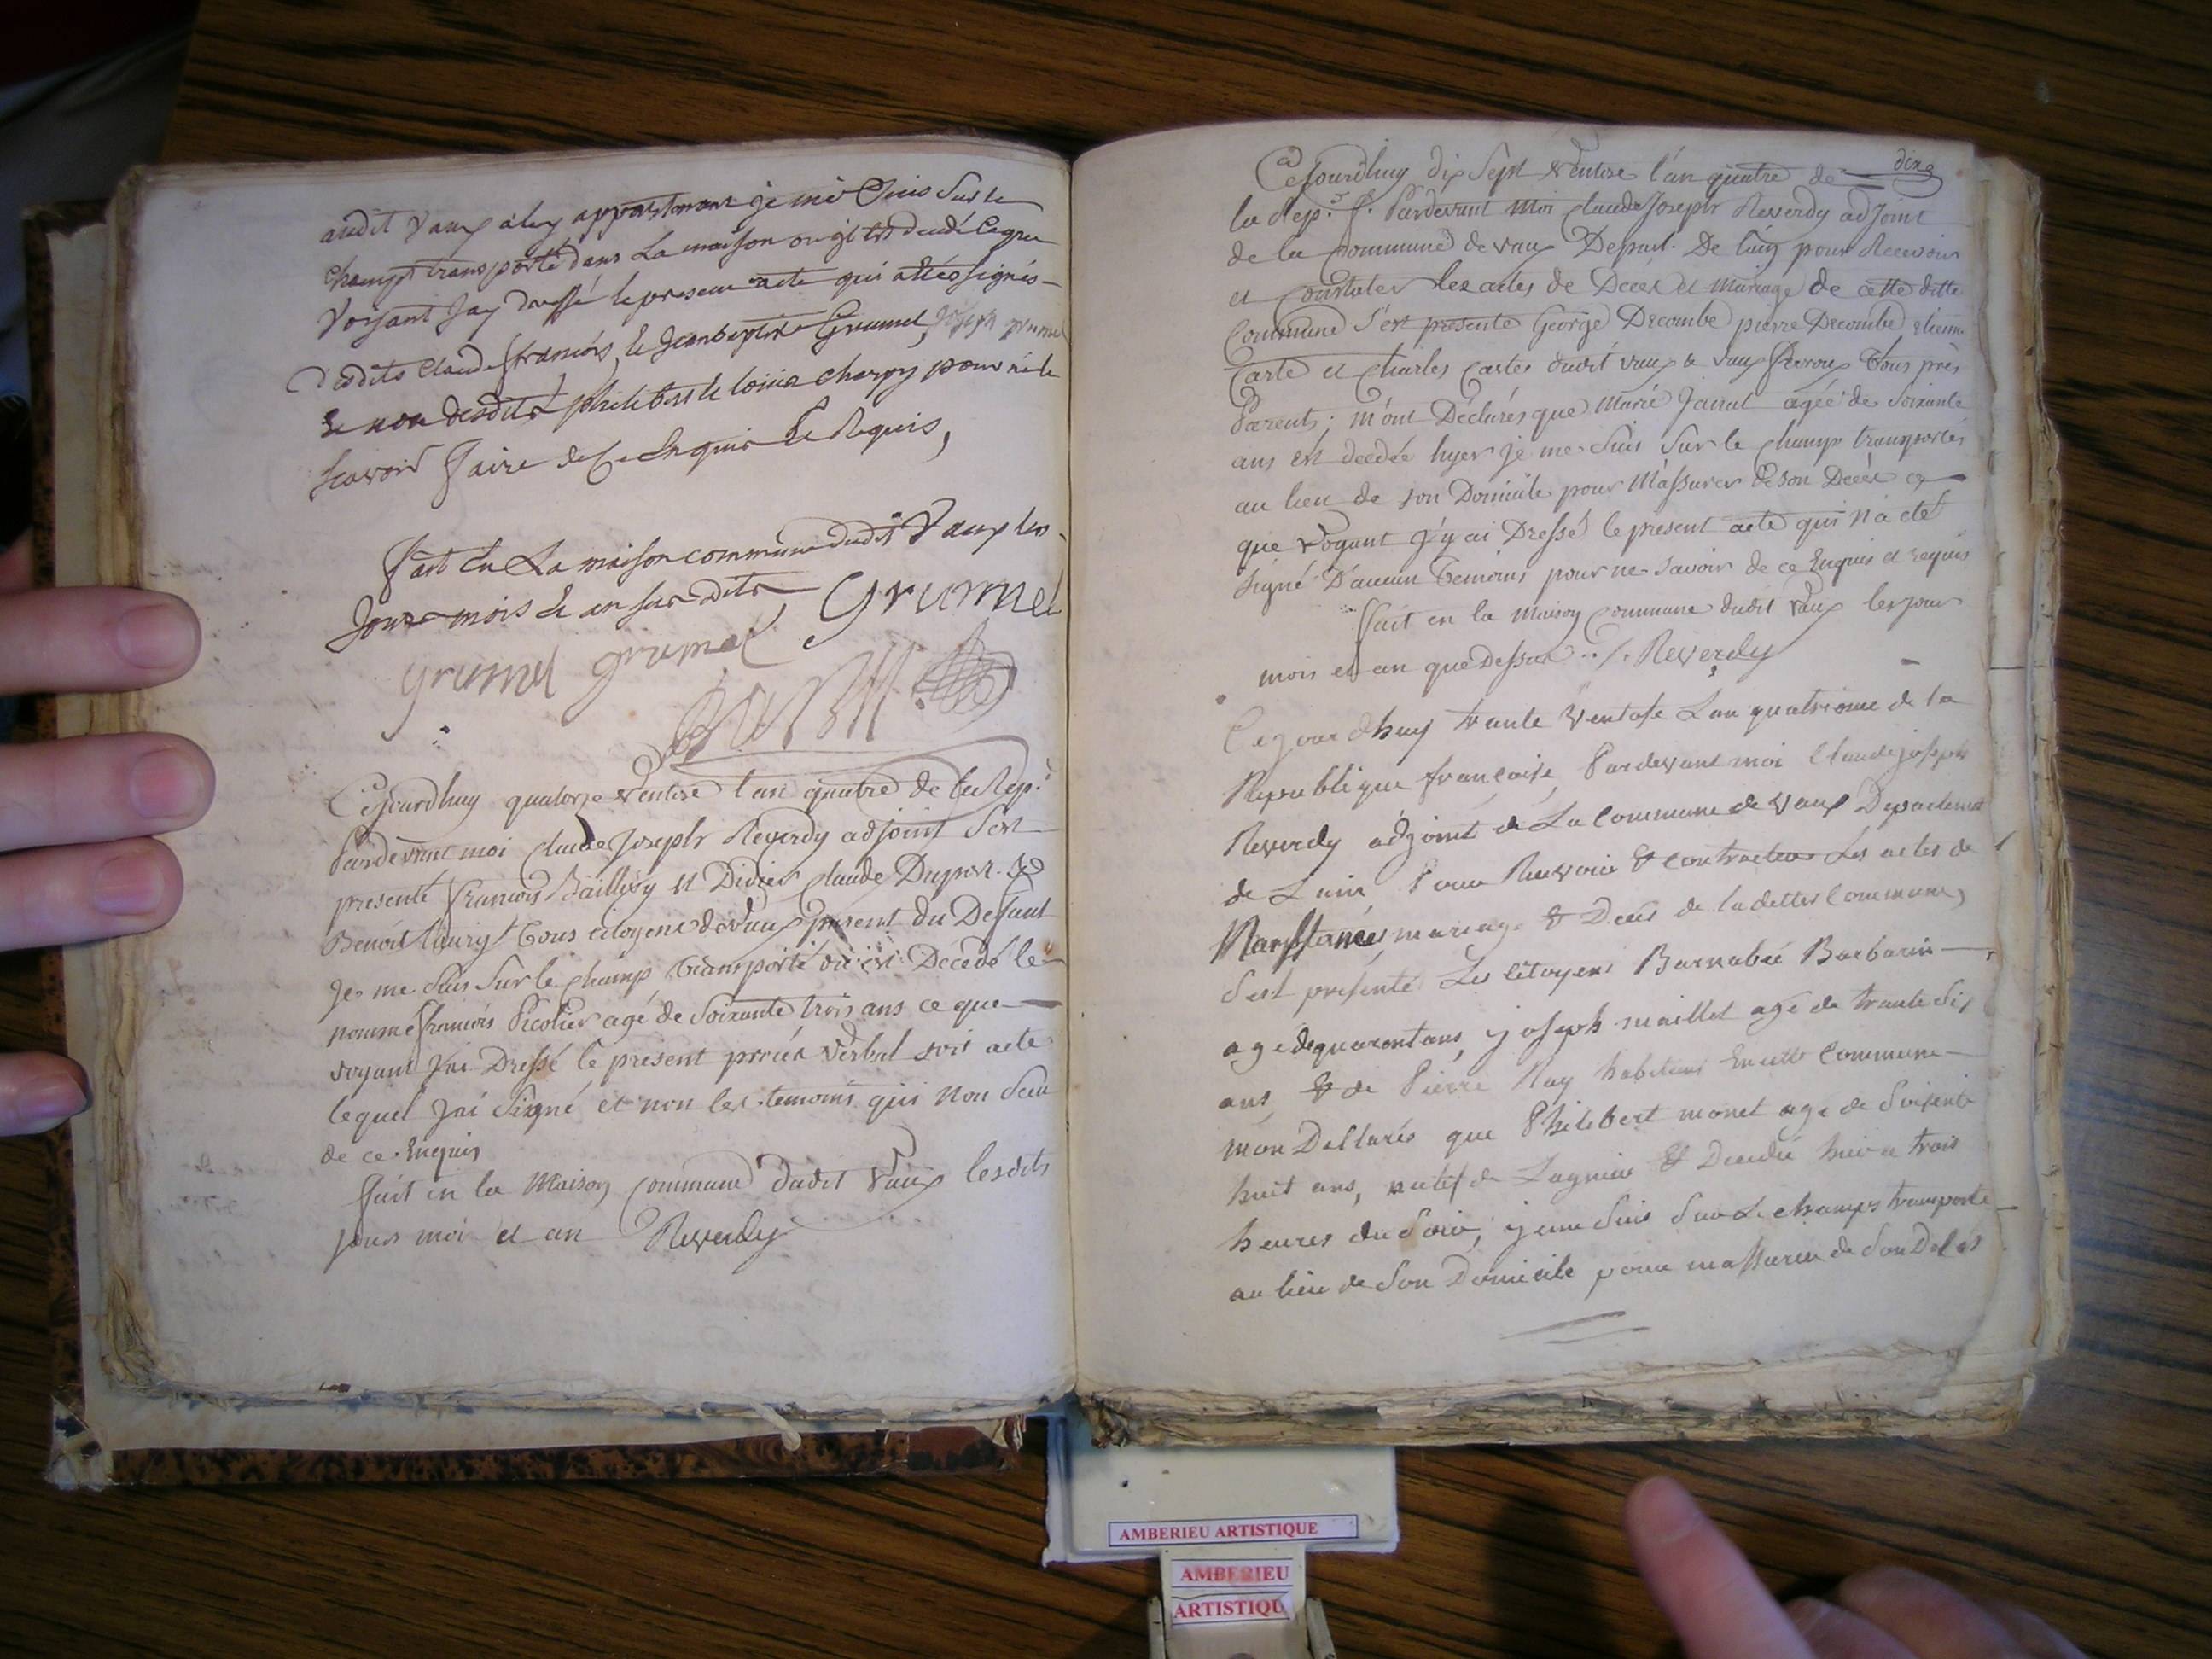 audit Vaux a luy appartenant je me Suis Sur le
champs transporté dans La maison ou git led decedé Ce que
Voyant Jay dressé le present acte qui a étés signés
desdits Claude francois, & Jeanbaptiste Grumel, Joseph grumel
& non desdits philibert & loüis charpy pour ne le
scavoir faire de Ce Enquis & Requis,
fait en La maison commune dudit Vaux les
Jour mois & an susdits Grumel
grumel grumel
Cejourdhuy quatorze Ventose l'an quatre de la Rep.
Pardevant moi Claude Joseph Reverdy adjoint S'est
presenté francois Baillivy et Didier claude Dupont
Benoit tous citoyens de Vaux present du Defunt
Je me Suis Sur le champ transporté où est Decedé le
nommé francois Picolier agé de Soixante trois ans ce que
voyant J'ai Dressé le présent procés verbal soit acte
lequel J'ai Signé et non les temoins qui n'on Seu
de ce Enquis
fait en la Maison commune dudit Vaux lesdits
jours moi et an Reverdy
Cejourdhuy dix Sept Ventose l'an quatre de
la Rep. f. Pardevant moi Claude Joseph Reverdy adjoint
de la commune de Vaux Depart. De l'ain pour Recevoir
et Constater les actes de Deces et mariage de cette ditte
Commune S'est presenté George Decombe pierre Decombe etienne
Carte et Charles Cartes dudit Vaux & Vaux fevroux tous près
Parents; m'ont Déclarés que Marie Jannet agée de Soixante
ans est decedée hyer je me Suis Sur le champ transportés
au lieu de son Domicile pour M'assurer de son Décès ce
que Voyant J'y ai Dressé le présent acte qui n'a eté
signé D'aucun temoins pour ne savoir de ce Enquis et requis
fait en la Maison Commune dudit Vaux les jour
mois et an que Dessus ./. Reverdy
Cejourdhuy trante Ventose Lan quatrieme de la
Republique francaise, Pardevant moi Claudejoseph
Reverdy adjoint de La Commune de Vaux Departement
de Lain Pour Recevoir & contracter Les actes de
Naissances mariage & Deces de ladittes Commune,
Sest presenté Les Citoyens Barnabée Barbarin
age de quarant ans, joseph maillet age de trante Six
ans & de Pierre Nay habitans En cette Commune
mon Dellarés que Philibert monet age de Soisente
huit ans, natif de Lagnieu & Decedé hier a trois
heures du Soir, je me Suis Sur Le champs transporté
au lieu de Son Domicile pour massurer de Son Delés
AMBERIEU ARTISTIQUE
AMBERIEU
ARTISTIQU